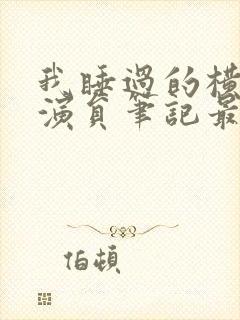 我睡過的橫
演員筆記最
伯頓